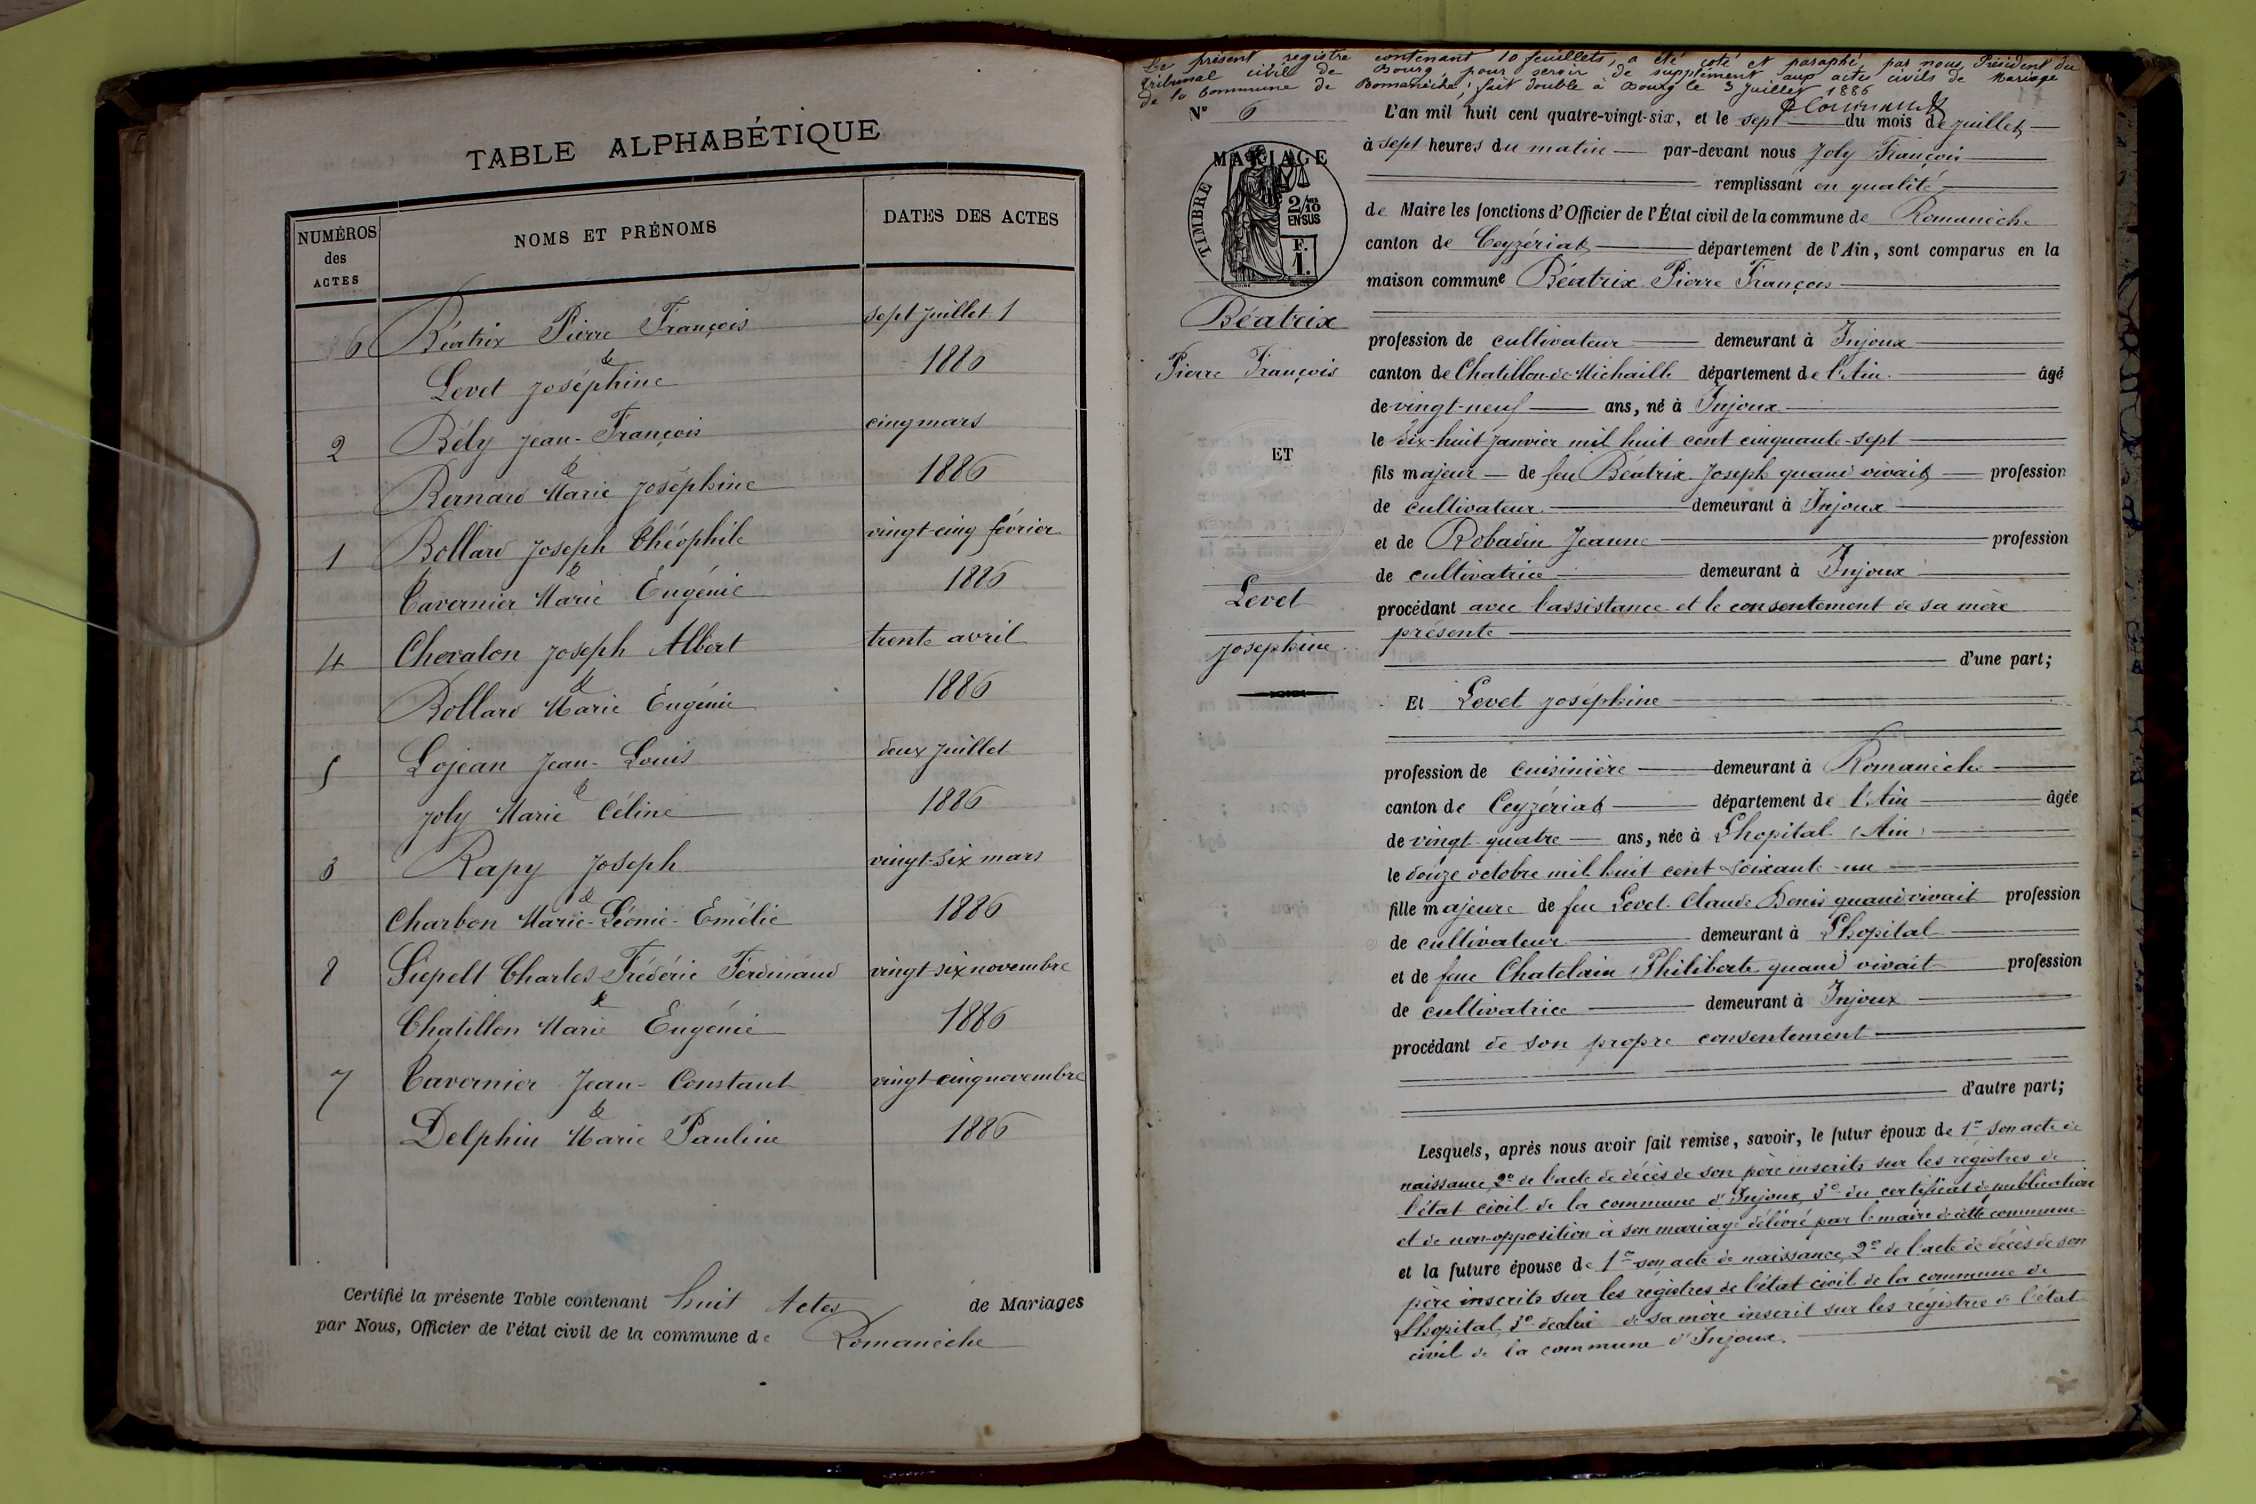 TABLE ALPHABÉTIQUE
NUMÉROS des ACTES
NOMS ET PRÉNOMS
DATES DES ACTES
6 Béatrix Pierre François sept juillet 1
&
Levet Joséphine 1886
2 Bély Jean-François cinq mars
&
Bernard Marie Joséphine 1886
1 Bollard Joseph Théophile vingt-cinq février
&
Tavernier Marie Eugénie 1886
4 Chevalon Joseph Albert trente avril
&
Bollard Marie Eugénie 1886
5 Lojean Jean-Louis deux juillet
&
Joly Marie Céline 1886
3 Rapy Joseph vingt-six mars
&
Charbon Marie-Léonie-Emélie 1886
8 Siepelt Charles-Frédéric Ferdinand vingt six novembre
&
Chatillon Marie Eugénie 1886
7 Tavernier Jean-Constant vingt-cinq novembre
&
Delphin Marie Pauline 1886
Certifié la présente Table contenant huit Actes de Mariages
par Nous, Officier de l'état civil de la commune de Romanèche
Le présent registre contenant 10 feuillets, a été coté et paraphé par nous Président du
tribunal civil de Bourg, pour servir de supplément aux actes civils de Mariage
de la Commune de Romanèche; fait double à Bourg le 3 Juillet 1886
N° 6
L'an mil huit cent quatre-vingt-six, et le sept du mois de juillet
à sept heures du matin par-devant nous Joly François
remplissant en qualité
de Maire les fonctions d'Officier de l'État civil de la commune de Romanèche
canton de Ceyzériat département de l'Ain, sont comparus en la
maison commune Béatrix Pierre François
MARIAGE
TIMBRE
2/10 EN SUS
F. 1.
Béatrix
Pierre François
ET
Levet
Josephine
profession de cultivateur demeurant à Injoux
canton de Chatillon-de-Michaille département de l'Ain âgé
de vingt-neuf ans, né à Injoux
le dix-huit janvier mil huit cent cinquante-sept
fils majeur de feu Béatrix Joseph quand vivait profession
de cultivateur demeurant à Injoux
et de Robadin Jeanne profession
de cultivatrice demeurant à Injoux
procédant avec l'assistance et le consentement de sa mère
présente
d'une part;
Et Levet Joséphine
profession de cuisinière demeurant à Romanèche
canton de Ceyzériat département de l'Ain âgée
de vingt quatre ans, née à Lhopital (Ain)
le douze octobre mil huit cent soixante-un
fille majeure de feu Levet Claude Denis quand vivait profession
de cultivateur demeurant à Lhopital
et de feue Chatelain Philiberte quand vivait profession
de cultivatrice demeurant à Injoux
procédant de son propre consentement
d'autre part;
Lesquels, après nous avoir fait remise, savoir, le futur époux de 1° son acte de
naissance, 2° de l'acte de décès de son père inscrits sur les régistres de
l'état civil de la commune d'Injoux, 3° du certificat de publication
et de non-opposition à son mariage délivré par le maire de cette commune
et la future épouse de 1° son acte de naissance, 2° de l'acte de décès de son
père inscrits sur les régistres de l'état civil de la commune de
Lhopital, 3° de celui de sa mère inscrit sur les régistres de l'état
civil de la commune d'Injoux.